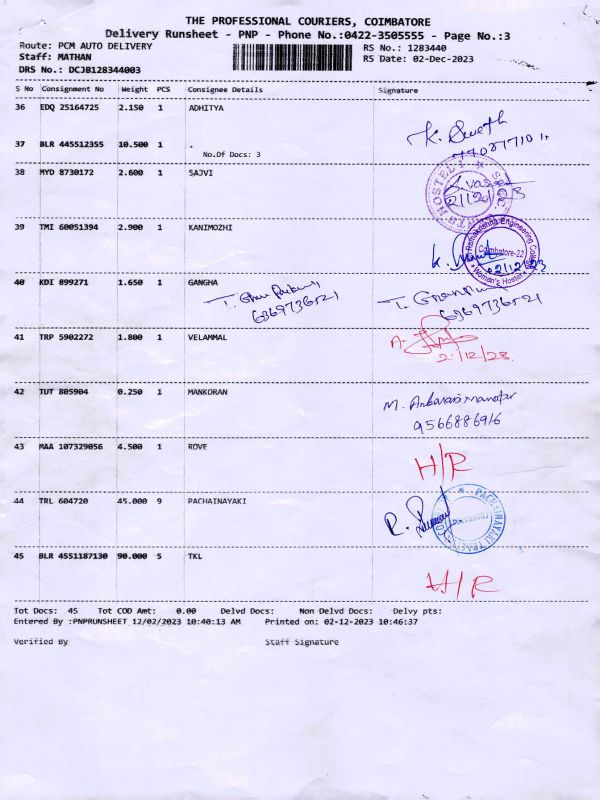 THE PROFESSIONAL COURIERS, COIMBATORE
Delivery Runsheet - PNP - Phone No.:0422-3505555 - Page No.:3
Route: PCM AUTO DELIVERY
RS No.: 1283440
Staff: MATHAN
RS Date: 02-Dec-2023
DRS No.: DCJB128344003
S No Consignment No Weight PCS Consignee Details Signature
36 EDQ 25164725 2.150 1 ADHITYA
K. Sweth
37 BLR 445512355 10.500 1 .
No.Of Docs: 3
38 MYD 8730172 2.600 1 SAJVI
39 TMI 60051394 2.900 1 KANIMOZHI
Ramakrishna Engineering College
Coimbatore-22
Women's Hostel
2/12/23
40 KDI 899271 1.650 1 GANGHA
6369736521
6369736521
41 TRP 5902272 1.800 1 VELAMMAL
A.
2/12/23
42 TUT 805904 0.250 1 MANKORAN
M. Anbarasi manohar
9566886916
43 MAA 107329056 4.500 1 ROVE
H/R
44 TRL 604720 45.000 9 PACHAINAYAKI
R.
PACHAINAYAKI
45 BLR 4551187130 90.000 5 TKL
H/R
Tot Docs: 45 Tot COD Amt: 0.00 Delvd Docs: Non Delvd Docs: Delvy pts:
Entered By :PNPRUNSHEET 12/02/2023 10:40:13 AM Printed on: 02-12-2023 10:46:37
Verified By Staff Signature